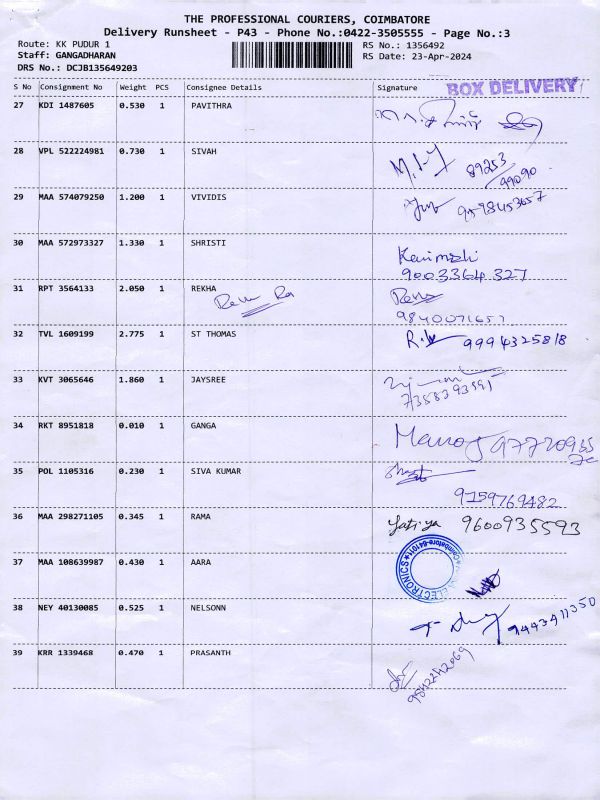 THE PROFESSIONAL COURIERS, COIMBATORE
Delivery Runsheet - P43 - Phone No.:0422-3505555 - Page No.:3
Route: KK PUDUR 1
Staff: GANGADHARAN
DRS No.: DCJB135649203
RS No.: 1356492
RS Date: 23-Apr-2024
S No Consignment No Weight PCS Consignee Details Signature BOX DELIVERY
27 KDI 1487605 0.530 1 PAVITHRA
28 VPL 522224981 0.730 1 SIVAH
89253
99090
29 MAA 574079250 1.200 1 VIVIDIS
9598453657
30 MAA 572973327 1.330 1 SHRISTI
Kanimozhi
9003364327
31 RPT 3564133 2.050 1 REKHA
9840071657
32 TVL 1609199 2.775 1 ST THOMAS
9994325818
33 KVT 3065646 1.860 1 JAYSREE
7358393595
34 RKT 8951818 0.010 1 GANGA
Manoj
35 POL 1105316 0.230 1 SIVA KUMAR
9159769482
36 MAA 298271105 0.345 1 RAMA
9600935593
37 MAA 108639987 0.430 1 AARA
ELECTRONICS
38 NEY 40130085 0.525 1 NELSONN
9443411350
39 KRR 1339468 0.470 1 PRASANTH
9842242069